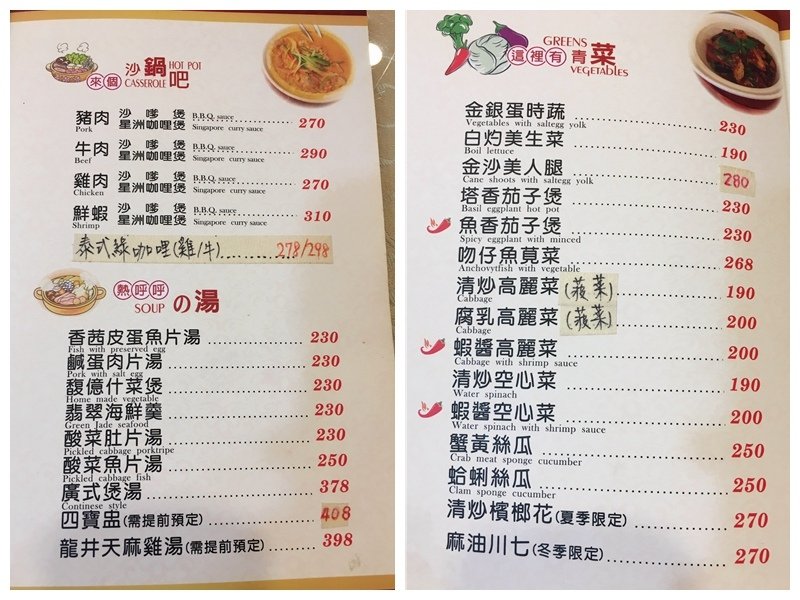 來個 沙鍋吧 HOT POT
CASSEROLE
豬肉 沙嗲煲 B.B.Q. sauce
Pork 星洲咖哩煲 Singapore curry sauce 270
牛肉 沙嗲煲 B.B.Q. sauce
Beef 星洲咖哩煲 Singapore curry sauce 290
雞肉 沙嗲煲 B.B.Q. sauce
Chicken 星洲咖哩煲 Singapore curry sauce 270
鮮蝦 沙嗲煲 B.B.Q. sauce
Shrimp 星洲咖哩煲 Singapore curry sauce 310
泰式綠咖哩(雞/牛)........278/298
熱呼呼 の湯
SOUP
香茜皮蛋魚片湯 230
Fish with preserved egg
鹹蛋肉片湯 230
Pork with salt egg
馥億什菜煲 230
Home made vegetable
翡翠海鮮羹 230
Green Jade seafood
酸菜肚片湯 230
Pickled cabbage porktripe
酸菜魚片湯 250
Pickled cabbage fish
廣式煲湯 378
Continese style
四寶盅(需提前預定) 408
龍井天麻雞湯(需提前預定) 398
這裡有 GREENS 青菜
VEGETABLES
金銀蛋時蔬 230
Vegetables with saltegg yolk
白灼美生菜 190
Boil lettuce
金沙美人腿 280
Cane shoots with saltegg yolk
塔香茄子煲 230
Basil eggplant hot pot
魚香茄子煲 230
Spicy eggplant with minced
吻仔魚莧菜 268
Anchovytfish with vegetable
清炒高麗菜(菠菜) 190
Cabbage
腐乳高麗菜(菠菜) 200
Cabbage
蝦醬高麗菜 200
Cabbage with shrimp sauce
清炒空心菜 190
Water spinach
蝦醬空心菜 200
Water spinach with shrimp sauce
蟹黃絲瓜 250
Crab meat sponge cucumber
蛤蜊絲瓜 250
Clam sponge cucumber
清炒檳榔花(夏季限定) 270
麻油川七(冬季限定) 270